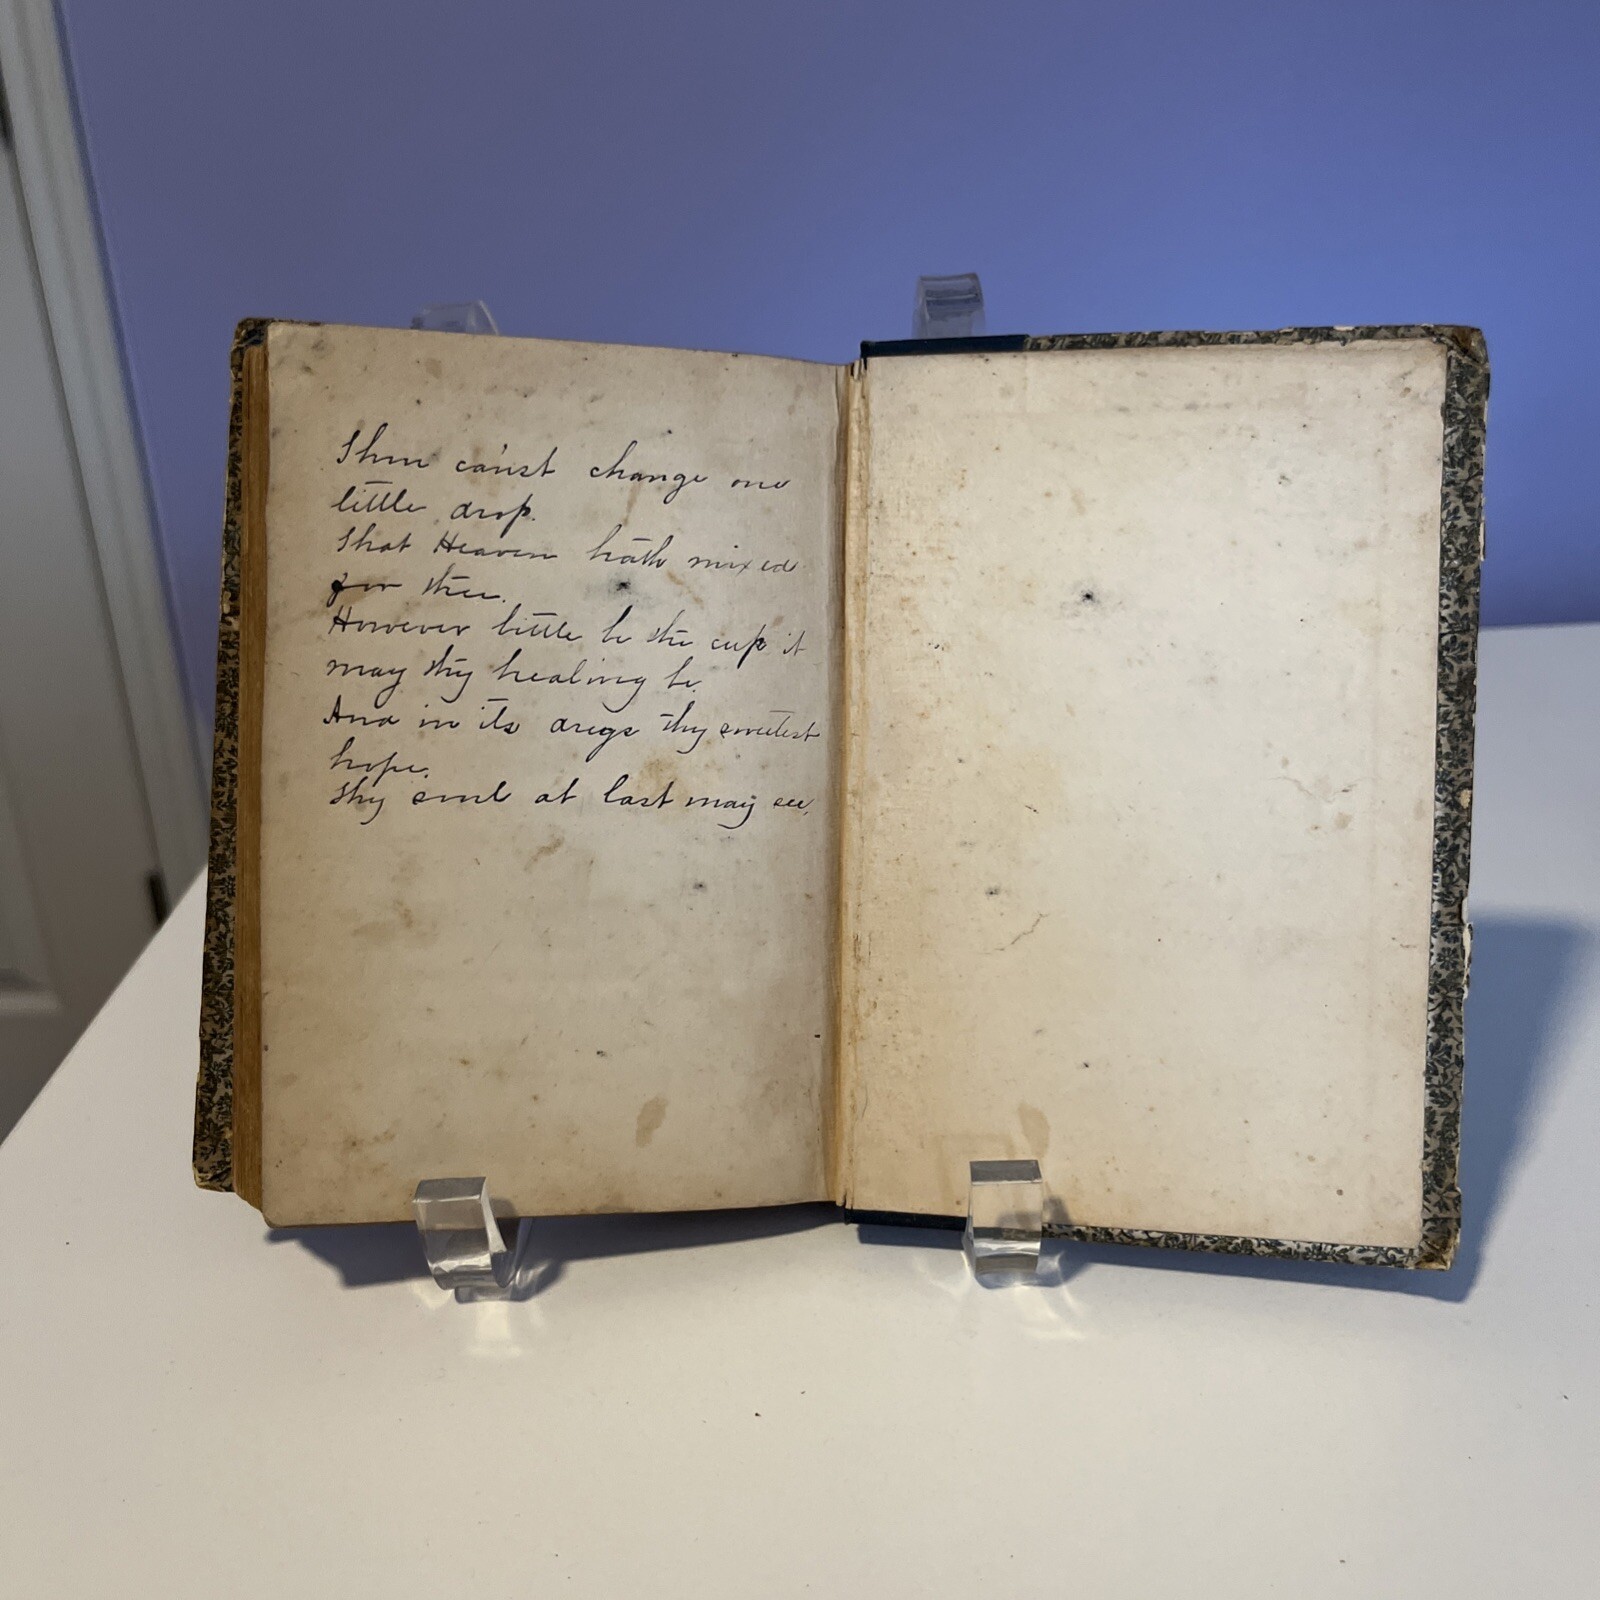 Thou can'st change one
little drop.
That Heaven hath mixed
for thee.
However little be the cup it
may thy healing be.
And in its dregs thy sweetest
hope.
Thy soul at last may see.